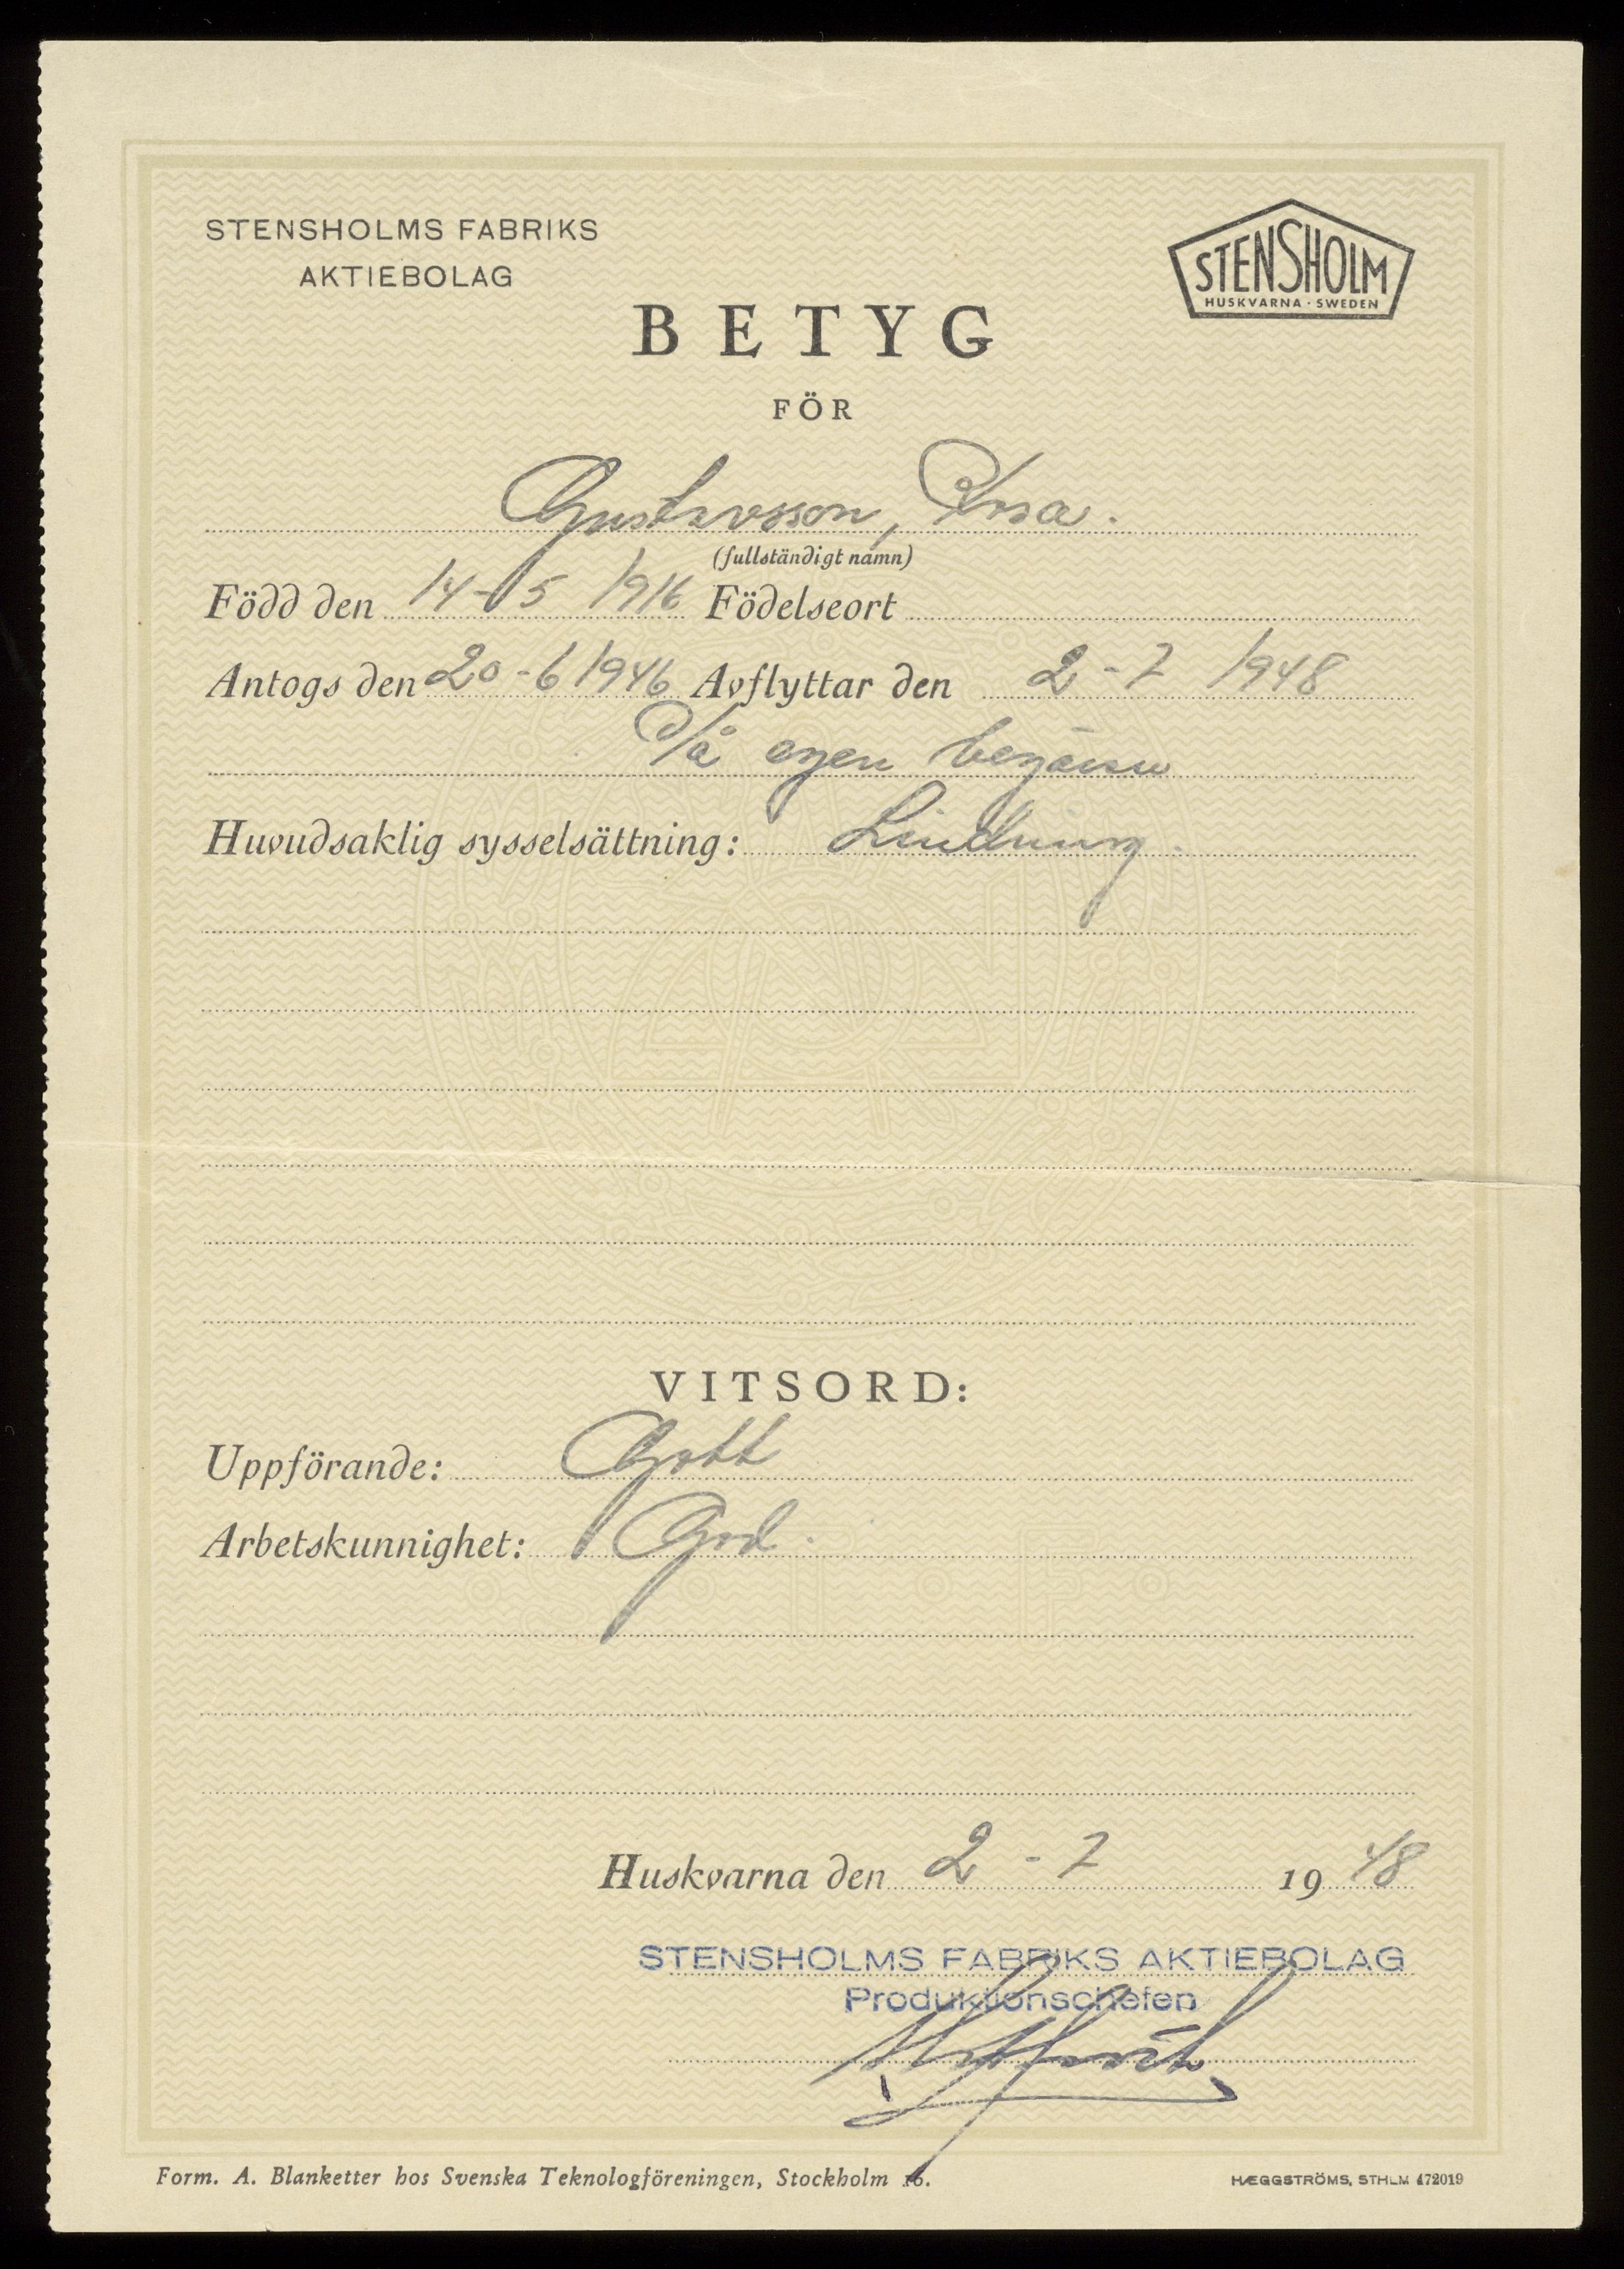 STENSHOLMS FABRIKS
AKTIEBOLAG
STENSHOLM
HUSKVARNA · SWEDEN
BETYG
FÖR
Gustavsson, Rosa.
(fullständigt namn)
Född den 14-5 1916 Födelseort
Antogs den 20-6 1946 Avflyttar den 2-7 1948
På egen begäran
Huvudsaklig sysselsättning: Lindning.
VITSORD:
Uppförande: Gott
Arbetskunnighet: God.
S.T.F.
Huskvarna den 2-7 1948
STENSHOLMS FABRIKS AKTIEBOLAG
Produktionschefen
Form. A. Blanketter hos Svenska Teknologföreningen, Stockholm 16.
HÆGGSTRÖMS, STHLM 472019